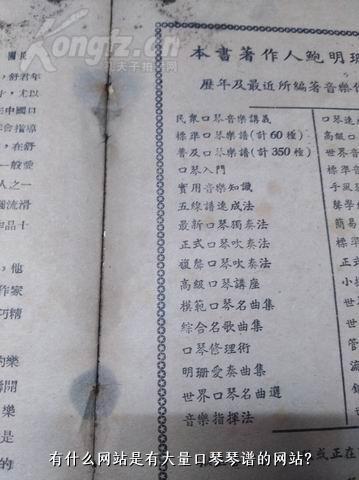 Kongfz.com
孔夫子旧书网
國
，舒君年
，尤以
在中國口
合指導
，在舒
一般愛
人之一
圓流滑
作品十
，他
作家
巧精
的樂
時間
樂
是
的
本書著作人鮑明珊
歷年及最近所編著音樂
民衆口琴音樂講義
標準口琴樂譜(計60種)
普及口琴樂譜(計350種)
口琴入門
實用音樂知識
五線譜速成法
最新口琴獨奏法
正式口琴吹奏法
複聲口琴吹奏法
高級口琴講座
模範口琴名曲集
綜合名歌曲集
口琴修理術
明珊愛奏曲集
世界口琴名曲選
音樂指揮法
口琴速
高級口
世界音
標準
手風
簡易
正式
小
世
世
管
或正在
有什么网站是有大量口琴琴谱的网站?